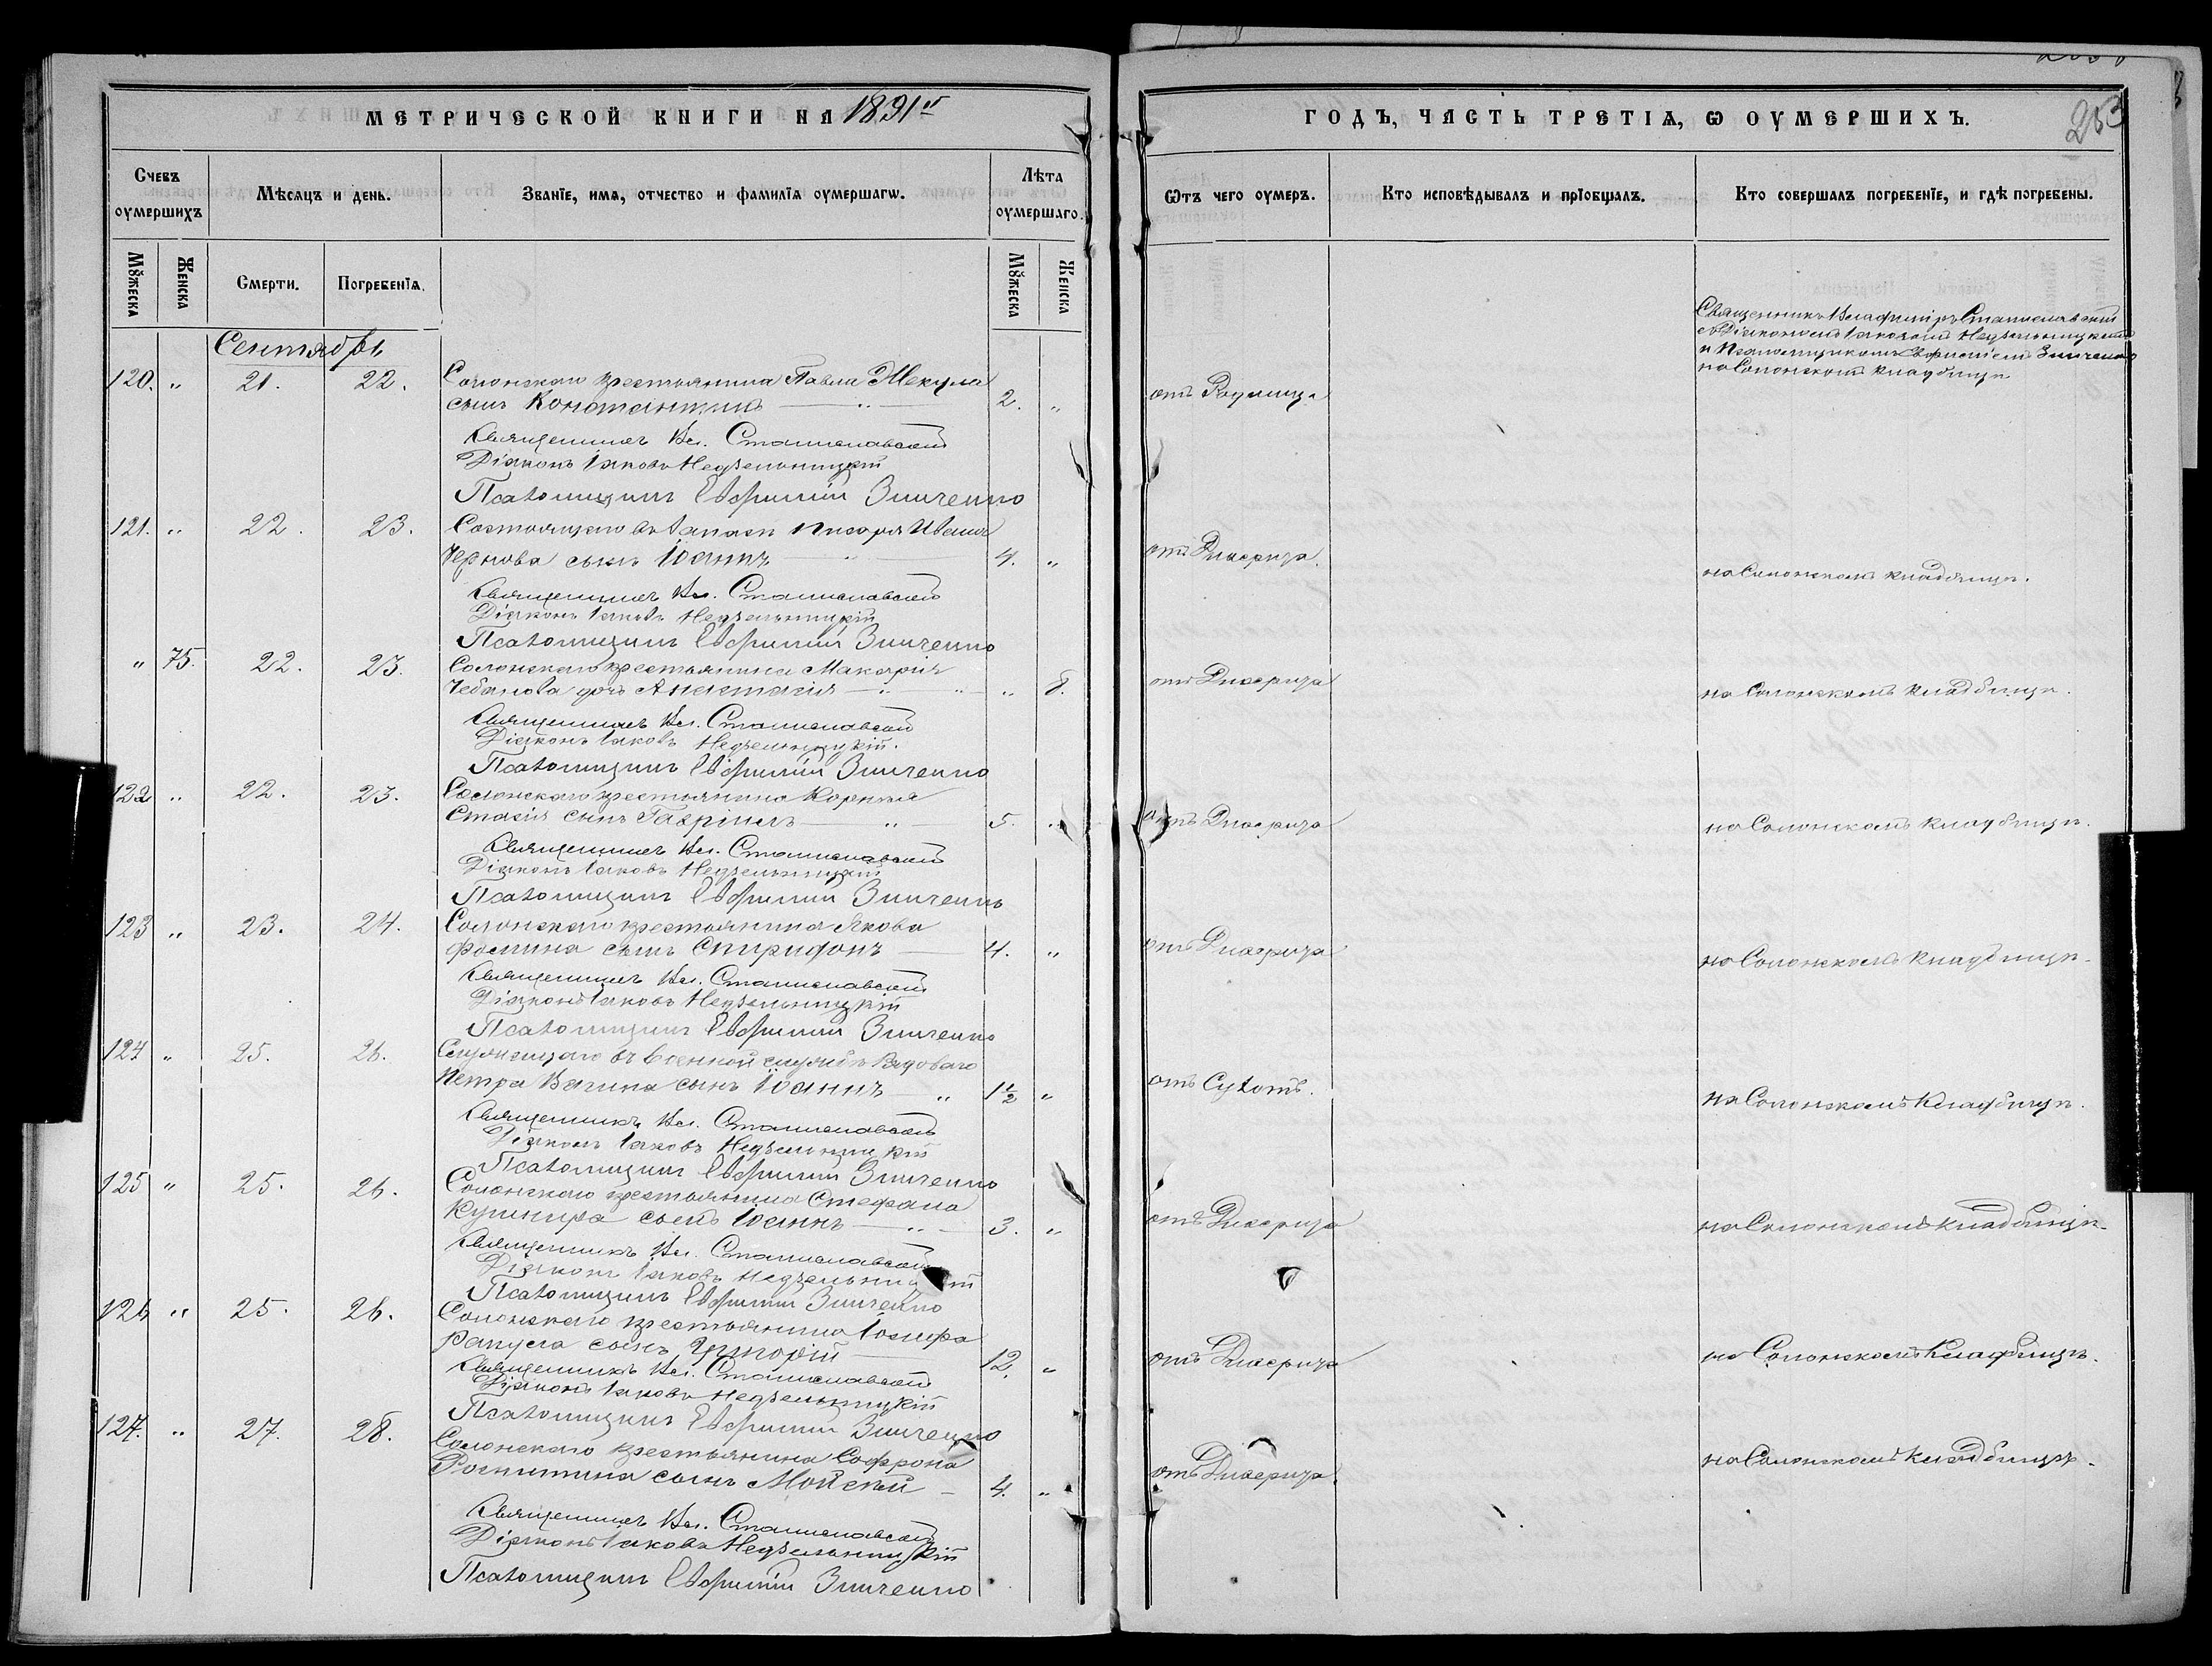 МЕТРИЧЕСКОЙ КНИГИ НА 1891й
Счетъ оумершихъ
Мѣсяцъ и день.
Званїе, имя, отчество и фамилїя оумершагѡ.
Лѣта оумершаго.
Мꙋжеска
Женска
Смерти.
Погребенїя.
Мꙋжеска
Женска
Сентябрь
120. " 21. 22. Солонскаго крестьянина Павла
сынъ Константинъ 2. "
Священникъ Вл. Станиславскій
Діаконъ Іаковъ Недзельницкій
Псаломщикъ Евфимій Зинченко
121. " 22. 23. Состоящаго въ запасѣ писаря Ивана
Чернова сынъ Іоаннъ 4. "
Священникъ Вл. Станиславскій
Діаконъ Іаковъ Недзельницкій
Псаломщикъ Евфимій Зинченко
" 75. 22. 23. Солонскаго крестьянина Макарія
Чебанова дочь Анастасія " 8.
Священникъ Вл. Станиславскій
Діаконъ Іаковъ Недзельницкій.
Псаломщикъ Евфимій Зинченко
122 " 22. 23. Солонскаго крестьянина Корнила
Стасія сынъ Гавріилъ 5. "
Священникъ Вл. Станиславскій
Діаконъ Іаковъ Недзельницкій
Псаломщикъ Евфимій Зинченко
123 " 23. 24. Солонскаго крестьянина Якова
Фомина сынъ Спиридонъ 4. "
Священникъ Вл. Станиславскій
Діаконъ Іаковъ Недзельницкій
Псаломщикъ Евфимій Зинченко
124 " 25. 26. Служащаго въ военной службѣ Рядоваго
Петра сынъ Іоаннъ 1½ "
Священникъ Вл. Станиславскій
Діаконъ Іаковъ Недзельницкій
Псаломщикъ Евфимій Зинченко
125 " 25. 26. Солонскаго крестьянина Стефана
Кушнира сынъ Іоаннъ 3. "
Священникъ Вл. Станиславскій
Діаконъ Іаковъ Недзельницкій
Псаломщикъ Евфимій Зинченко
126 " 25. 26. Солонскаго крестьянина Іосифа
сынъ Григорій 12. "
Священникъ Вл. Станиславскій
Діаконъ Іаковъ Недзельницкій
Псаломщикъ Евфимій Зинченко
127. " 27. 28. Солонскаго крестьянина Софрона
сынъ Мойсей 4. "
Священникъ Вл. Станиславскій
Діаконъ Іаковъ Недзельницкій
Псаломщикъ Евфимій Зинченко
ГОДЪ, ЧАСТЬ ТРЕТІѦ, Ѡ ОУМЕРШИХЪ.
253
Ѿтъ чего оумеръ.
Кто исповѣдывалъ и прїобщалъ.
Кто совершалъ погребенїе, и гдѣ погребены.
Священникъ Владиміръ Станиславскій
съ Діакономъ Іаковомъ Недзельницкимъ
и Псаломщикомъ Евфиміемъ Зинченко
на Солонскомъ кладбищѣ
отъ Родимца
отъ Дифтерита.
на Солонскомъ кладбищѣ.
отъ Дифтерита
на Солонскомъ кладбищѣ.
отъ Дифтерита
на Солонскомъ кладбищѣ.
отъ Дифтерита
на Солонскомъ кладбищѣ.
отъ Сухотъ.
на Солонскомъ кладбищѣ.
отъ Дифтерита
на Солонскомъ кладбищѣ.
отъ Дифтерита
на Солонскомъ кладбищѣ.
отъ Дифтерита.
на Солонскомъ кладбищѣ.